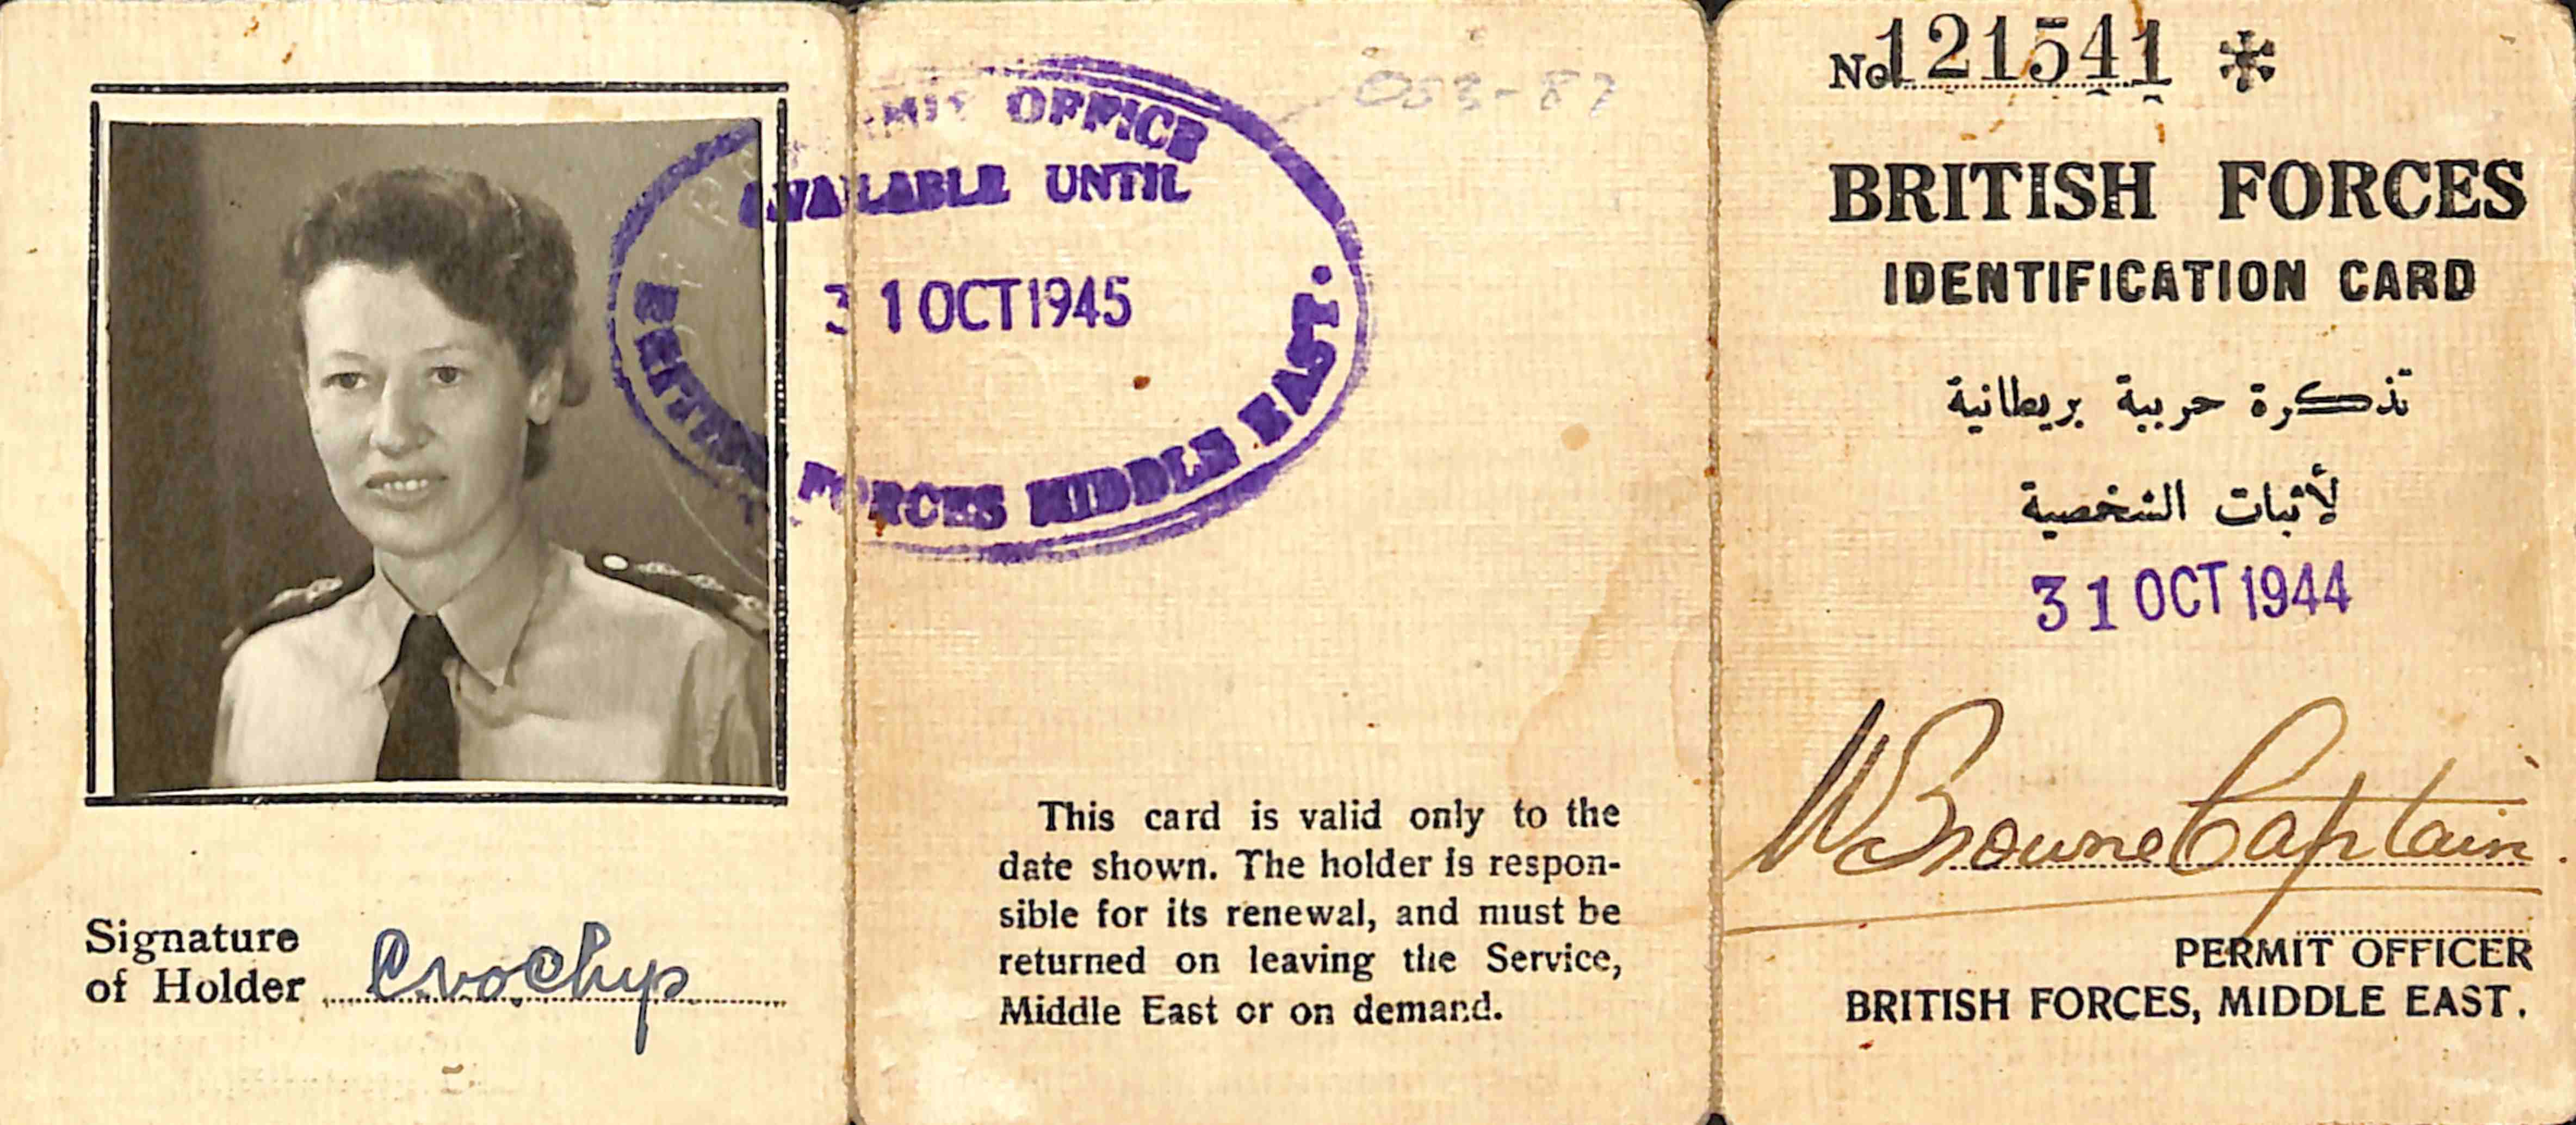 OFFICE
AVAILABLE UNTIL
31 OCT 1945
BRITISH FORCES MIDDLE EAST.
Signature
of Holder
This card is valid only to the
date shown. The holder is respon-
sible for its renewal, and must be
returned on leaving the Service,
Middle East or on demand.
No 121541 *
BRITISH FORCES
IDENTIFICATION CARD
تذكرة حربية بريطانية
لأثبات الشخصية
31 OCT 1944
W Browne Captain.
PERMIT OFFICER
BRITISH FORCES, MIDDLE EAST.